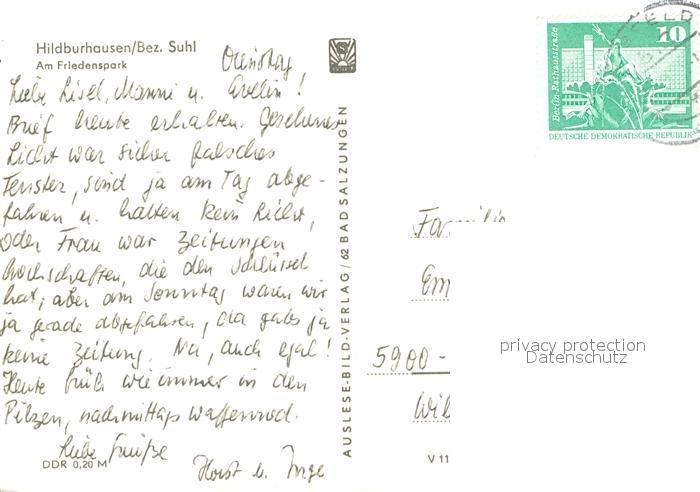 Hildburghausen/Bez. Suhl
Am Friedenspark
Dienstag
Liebe Lisel, Manni u. Evelin!
Brief heute erhalten. Gesehenes
Licht war sicher falsches
Fenster, sind ja am Tag abge-
fahren u. hatten kein Licht,
oder Frau war Zeitungen
hochschaffen, die den Schlüssel
hat, aber am Sonntag waren wir
ja gerade abgefahren, da gabs ja
keine Zeitung. Na, auch egal!
Heute früh wie immer in den
Pilzen, nachmittags
Liebe Grüße
Horst u. Inge
DDR 0,20 M
AUSLESE-BILD-VERLAG/62 BAD SALZUNGEN
V 11
10
Berlin, Rathausstraße
DEUTSCHE DEMOKRATISCHE REPUBLIK
FELD
Familie
Em
5900-
Wil
privacy protection
Datenschutz